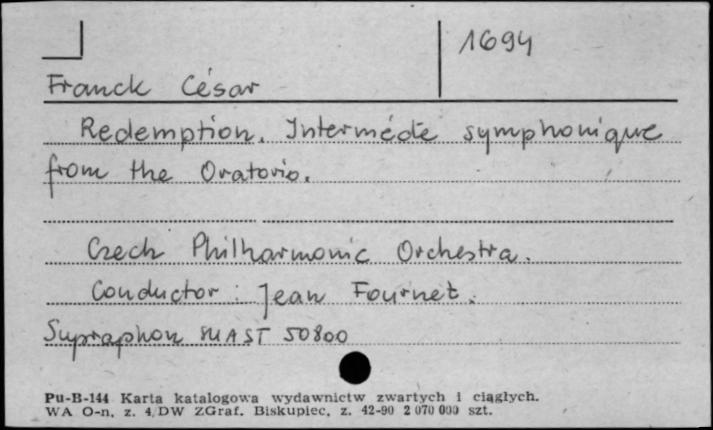 1694
Franck César
Redemption. Intermède symphonique
from the Oratorio.
Czech Philharmonic Orchestra.
Conductor: Jean Fournet.
Supraphon SUAST 50800
Pu-B-144 Karta katalogowa wydawnictw zwartych i ciągłych.
WA O-n, z. 4, DW ZGraf. Biskupiec, z. 42-90 2 070 000 szt.